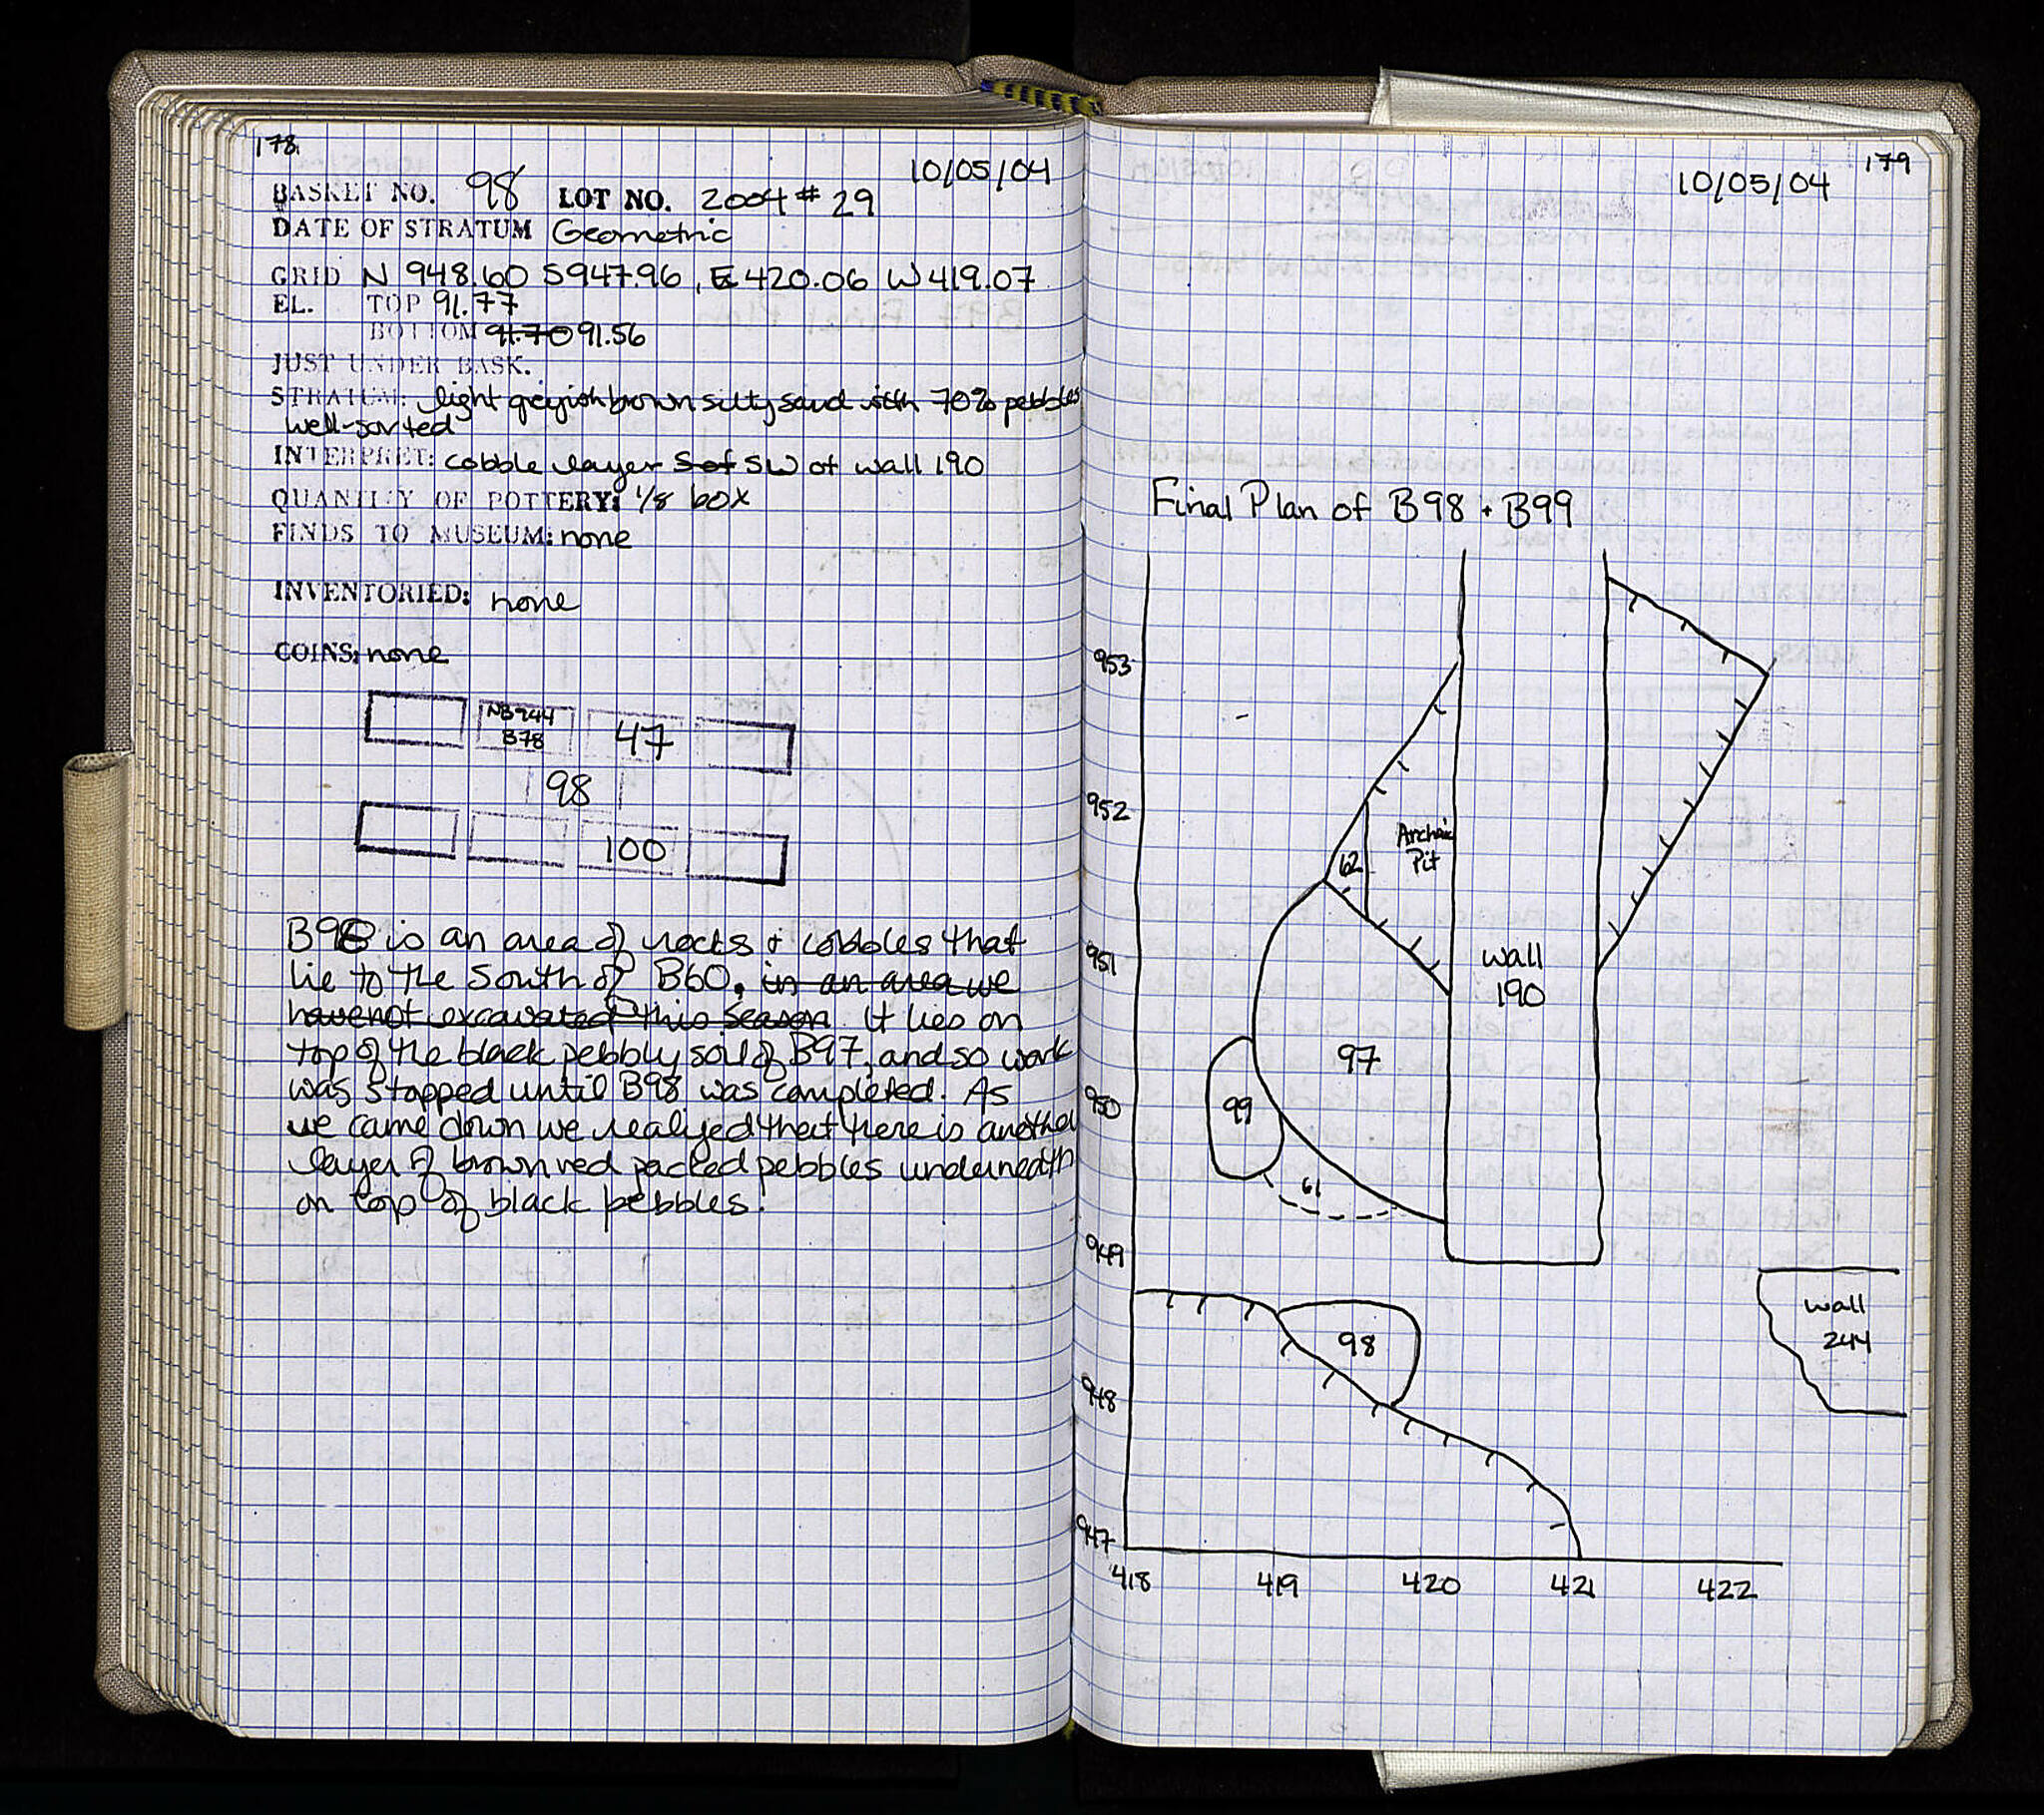 178
10/05/04
BASKET NO. 98 LOT NO. 2004 # 29
DATE OF STRATUM Geometric
GRID N 948.60 S947.96, E 420.06 W 419.07
EL. TOP 91.77
BOTTOM 91.70 91.56
JUST UNDER BASK.
STRATUM: light greyish brown silty sand with 70% pebbles
well-sorted
INTERPRET: cobble layer S of SW of wall 190
QUANTITY OF POTTERY: 1/8 box
FINDS TO MUSEUM: none
INVENTORIED: none
COINS: none
NB944
B78
47
98
100
B98 is an area of rocks + cobbles that
lie to the south of B60, in an area we
have not excavated this season. It lies on
top of the black pebbly soil of B97, and so work
was stopped until B98 was completed. As
we came down we realized that there is another
layer of brown red packed pebbles underneath
on top of black pebbles!
179
10/05/04
Final Plan of B98 + B99
953
952
Archaic
Pit
62
951
wall
190
97
950
99
61
949
wall
244
98
948
947
418 419 420 421 422